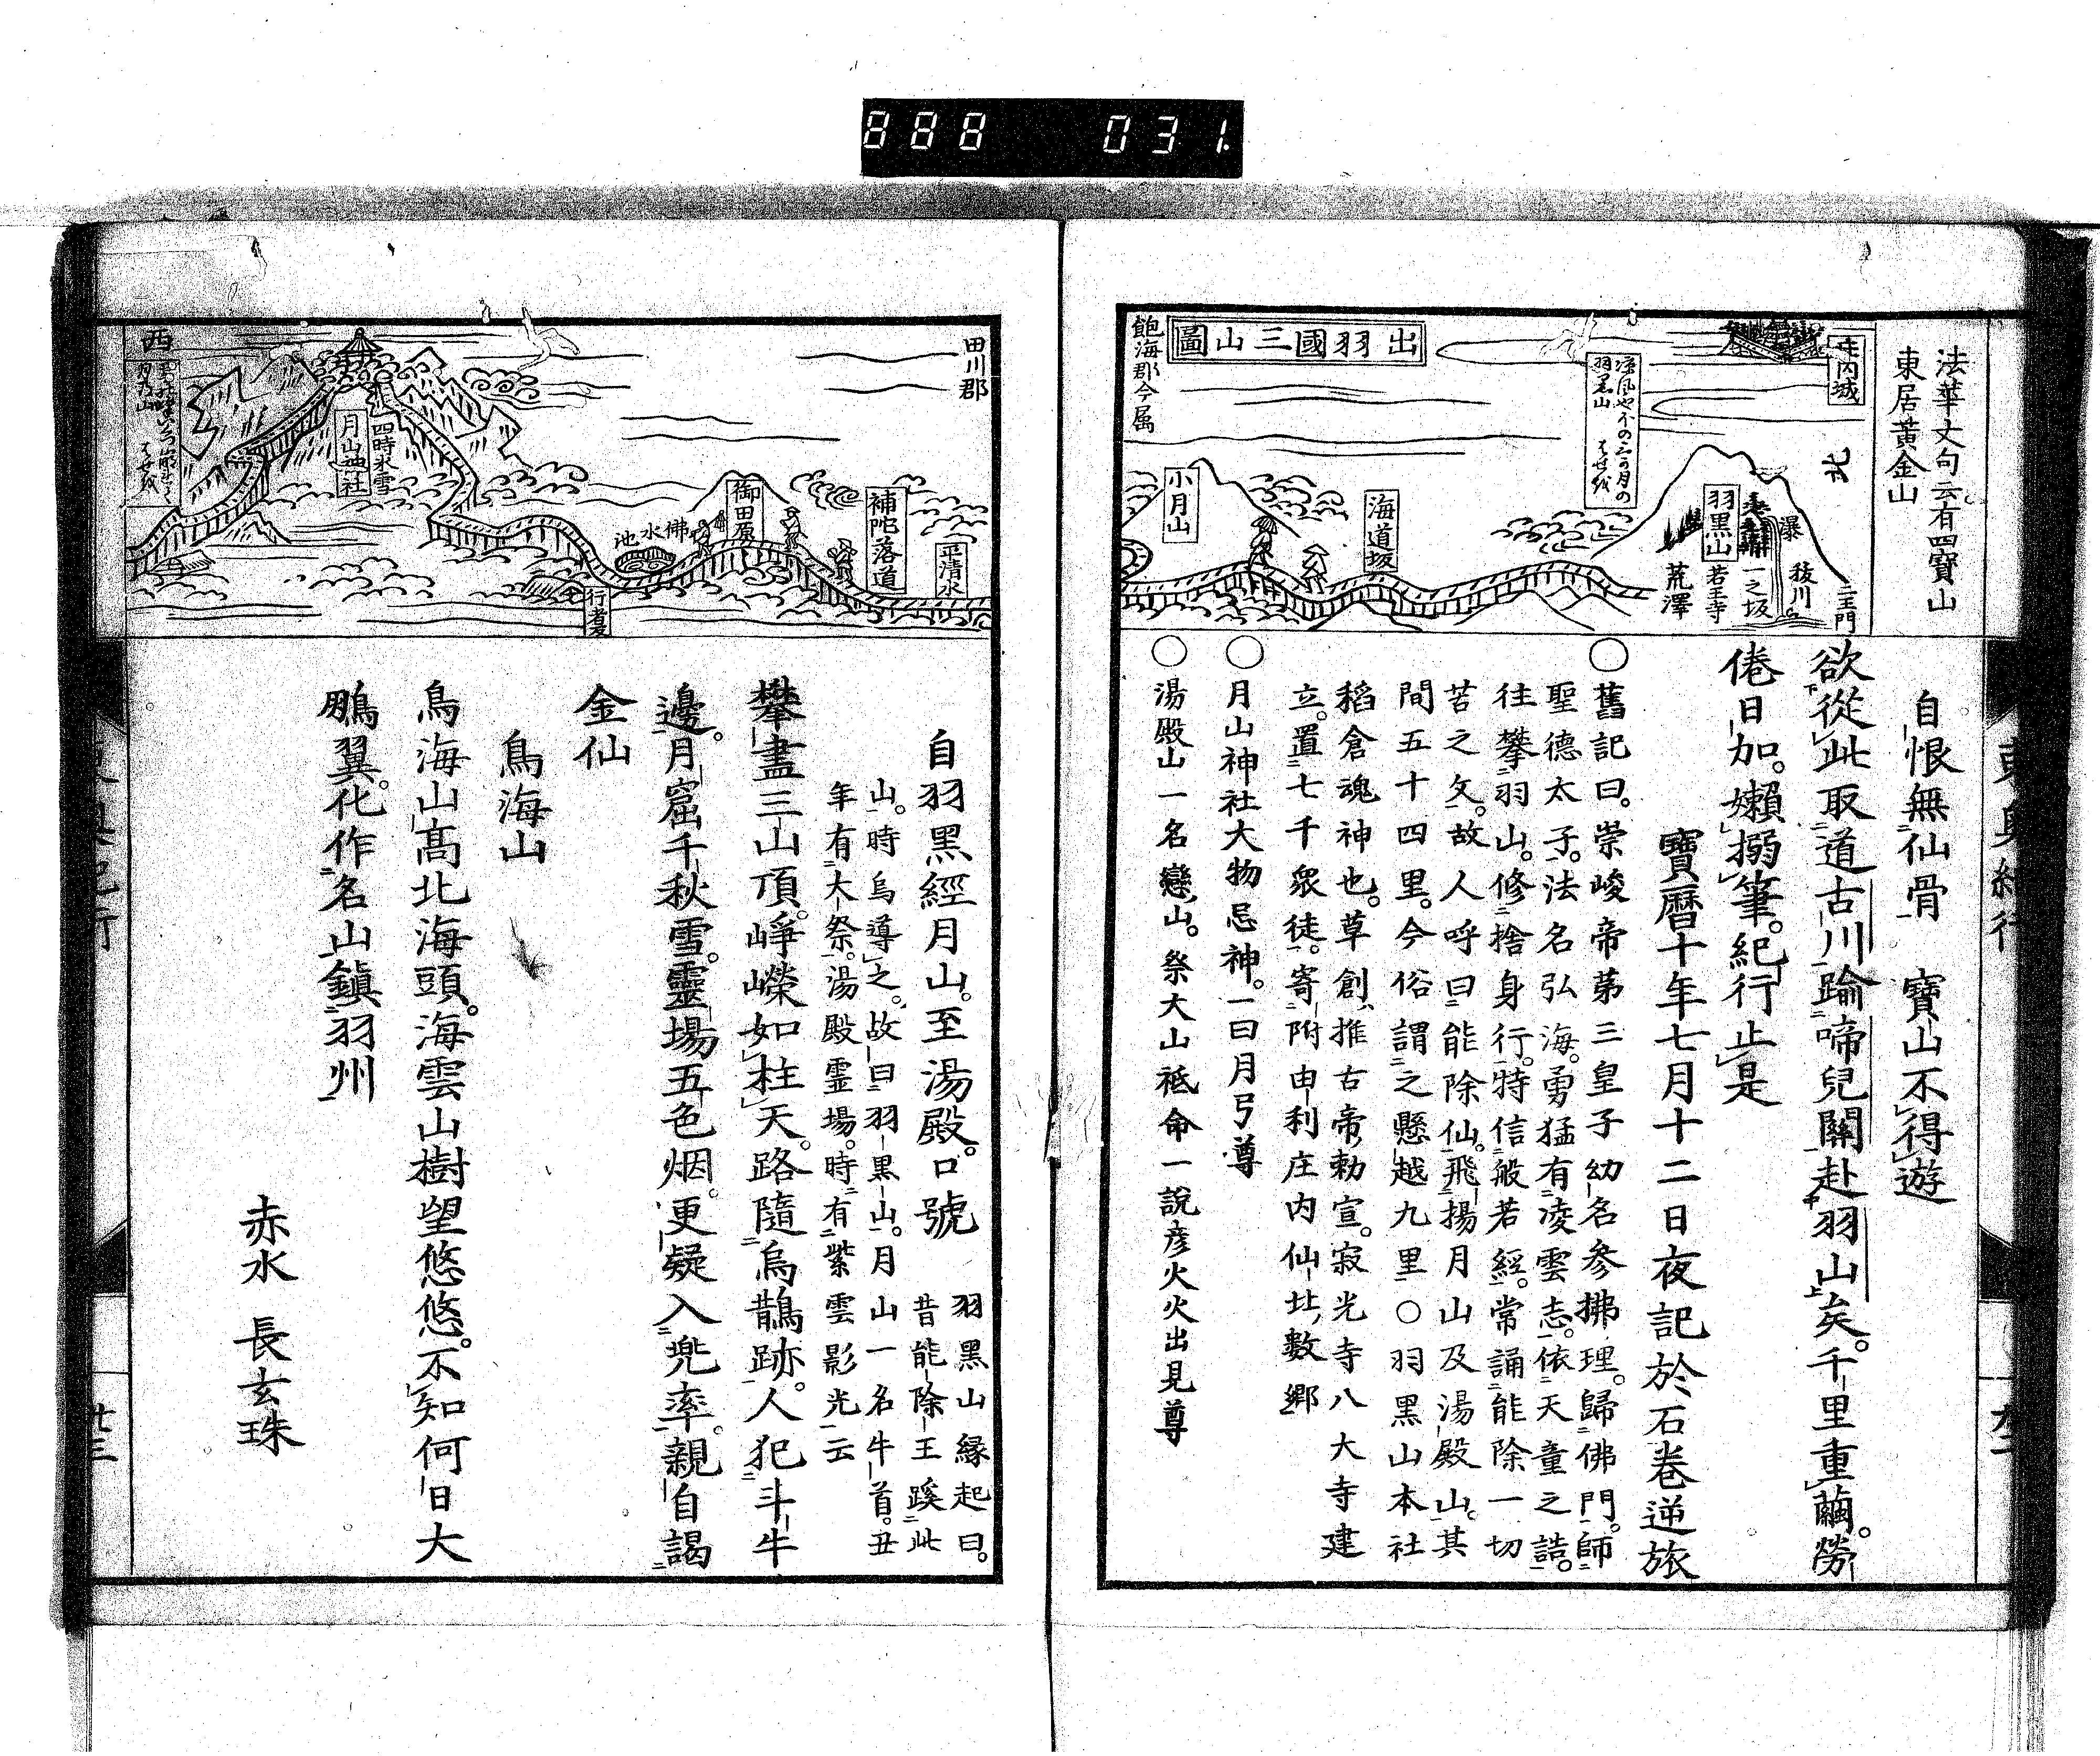 888 031.
法華文句云有四寶山
東居黃金山
自恨無仙骨 寶山不得遊
欲從此取道古川踰啼兒關赴羽山矣。千里重繭。勞
倦日加。嬾搦筆。紀行止是
寶曆十年七月十二日夜記於石卷逆旅
○舊記曰。崇峻帝第三皇子幼名參拂理。歸佛門。師
聖德太子。法名弘海。勇猛有凌雲志。依天童之誥。
往攀羽山。修捨身行。特信般若經。常誦能除一切
苦之文。故人呼曰能除仙。飛揚月山及湯殿山。其
間五十四里。今俗謂之懸越九里○羽黑山本社
稻倉魂神也。草創推古帝勅宣。寂光寺八大寺建
立。置七千衆徒。寄附由利庄内仙北數鄉
○月山神社大物忌神。一曰月弓尊
○湯殿山一名戀山。祭大山祗命一說彦火火出見尊
出羽國三山圖
飽海郡今屬
庄内城
北
凉風やほの三か月の
羽黒山 はせを
羽黑山
瀑
祓川
二王門
一之坂
若王寺
荒澤
海道坂
小月山
東奥紀行
田川郡
平清水
補陀落道
御田原
佛水池
行者
四時氷雪
月山神社
西
自羽黑經月山。至湯殿。口號
羽黑山緣起曰。
昔能除王蹊此
山。時烏導之。故曰羽黑山。月山一名牛首。丑
年有大祭。湯殿霊場。時有紫雲影光云
攀盡三山頂。崢嶸如柱天。路隨烏鵲跡。人犯斗牛
邊。月窟千秋雪。靈場五色烟。更疑入兜率。親自謁
金仙
鳥海山
鳥海山高北海頭。海雲山樹望悠悠。不知何日大
鵬翼。化作名山鎮羽州
赤水 長玄珠
廿三